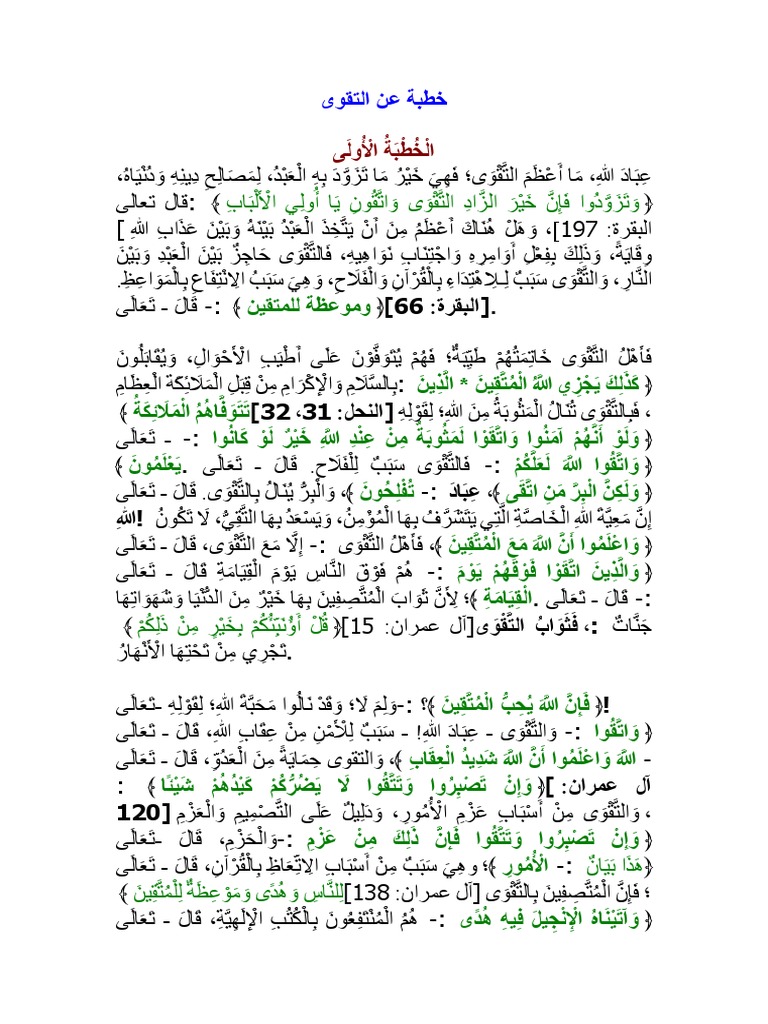 خطبة عن التقوى
الْخُطْبَةُ الْأُولَى
عِبَادَ اللهِ، مَا أَعْظَمَ التَّقْوَى؛ فَهِيَ خَيْرُ مَا تَزَوَّدَ بِهِ الْعَبْدُ، لِمَصَالِحِ دِينِهِ وَدُنْيَاهُ،
﴿ وَتَزَوَّدُوا فَإِنَّ خَيْرَ الزَّادِ التَّقْوَى وَاتَّقُونِ يَا أُولِي الْأَلْبَابِ ﴾ :قال تعالى
البقرة: 197]، وَهَلْ هُنَاكَ أَعْظَمُ مِنَ أَنْ يَتَّخِذَ الْعَبْدُ بَيْنَهُ وَبَيْنَ عَذَابِ اللهِ [
وِقَايَةً، وَذَلِكَ بِفِعْلِ أَوَامِرِهِ وَاجْتِنَابِ نَوَاهِيهِ، فَالتَّقْوَى حَاجِزٌ بَيْنَ الْعَبْدِ وَبَيْنَ
النَّارِ، وَالتَّقْوَى سَبَبٌ لِـلِاهْتِدَاءِ بِالْقُرْآنِ وَالْفَلَاحِ، وَهِيَ سَبَبُ الِانْتِفَاعِ بِالْمَوَاعِظِ.
.[البقرة: 66]﴿ وموعظة للمتقين ﴾ :- قَالَ - تَعَالَى
فَأَهْلُ التَّقْوَى خَاتِمَتُهُمْ طَيِّبَةٌ؛ فَهُمْ يُتَوَفَّوْنَ عَلَى أَطْيَبِ الْأَحْوَالِ، وَيُقَابَلُونَ
﴿ كَذَلِكَ يَجْزِي اللَّهُ الْمُتَّقِينَ * الَّذِينَ :بِالسَّلَامِ وَالْإِكْرَامِ مِنْ قِبَلِ الْمَلَائِكَةِ الْعِظَامِ
، فَبِالتَّقْوَى تُنَالُ الْمَثُوبَةُ مِنَ اللهِ؛ لِقَوْلِهِ [النحل: 31، 32]تَتَوَفَّاهُمُ الْمَلَائِكَةُ ﴾
﴿ وَلَوْ أَنَّهُمْ آمَنُوا وَاتَّقَوْا لَمَثُوبَةٌ مِنْ عِنْدِ اللَّهِ خَيْرٌ لَوْ كَانُوا :- - تَعَالَى
﴿ وَاتَّقُوا اللَّهَ لَعَلَّكُمْ :- فَالتَّقْوَى سَبَبٌ لِلْفَلَاحِ. قَالَ - تَعَالَى .يَعْلَمُونَ ﴾
﴿ وَلَكِنَّ الْبِرَّ مَنِ اتَّقَى ﴾، عِبَادَ :- تُفْلِحُونَ ﴾، وَالْبِرُّ يُنَالُ بِالتَّقْوَى. قَالَ - تَعَالَى
إِنَّ مَعِيَّةَ اللهِ الْخَاصَّةِ الَّتِي يَتَشَرَّفُ بِهَا الْمُؤْمِنُ، وَيَسْعَدُ بِهَا التَّقِيُّ، لَا تَكُونُ !اللهِ
﴿ وَاعْلَمُوا أَنَّ اللَّهَ مَعَ الْمُتَّقِينَ ﴾، فَأَهْلُ التَّقْوَى :- إِلَّا مَعَ التَّقْوَى، قَالَ - تَعَالَى
﴿ وَالَّذِينَ اتَّقَوْا فَوْقَهُمْ يَوْمَ :- هُمْ فَوْقَ النَّاسِ يَوْمَ الْقِيَامَةِ قَالَ - تَعَالَى
:- قَالَ - تَعَالَى .الْقِيَامَةِ ﴾؛ لِأَنَّ ثَوَابَ الْمُتَّصِفِينَ بِهَا خَيْرٌ مِنَ الدُّنْيَا وَشَهَوَاتِهَا
جَنَّاتٌ :، فَثَوَابُ التَّقْوَى[آل عمران: 15]﴿ قُلْ أَؤُنَبِّئُكُمْ بِخَيْرٍ مِنْ ذَلِكُمْ ﴾
.تَجْرِي مِنْ تَحْتِهَا الْأَنْهَارُ
!﴿ فَإِنَّ اللَّهَ يُحِبُّ الْمُتَّقِينَ ﴾؟ :-وَلِمَ لَا؛ وَقَدْ نَالُوا مَحَبَّةَ اللهِ؛ لِقَوْلِهِ -تَعَالَى
﴿ وَاتَّقُوا :- وَالتَّقْوَى - عِبَادَ اللهِ! - سَبَبٌ لِلْأَمْنِ مِنْ عِقَابِ اللهِ، قَالَ - تَعَالَى
- اللَّهَ وَاعْلَمُوا أَنَّ اللَّهَ شَدِيدُ الْعِقَابِ ﴾، وَالتقوى حِمَايَةً مِنَ الْعَدُوِّ، قَالَ - تَعَالَى
آل عمران: [﴿ وَإِنْ تَصْبِرُوا وَتَتَّقُوا لَا يَضُرُّكُمْ كَيْدُهُمْ شَيْئًا ﴾ :
، وَالتَّقْوَى مِنْ أَسْبَابِ عَزْمِ الْأُمُورِ، وَدَلِيلٌ عَلَى التَّصْمِيمِ وَالْعَزْمِ [120
﴿ وَإِنْ تَصْبِرُوا وَتَتَّقُوا فَإِنَّ ذَلِكَ مِنْ عَزْمِ :-وَالْحَزْمِ، قَالَ -تَعَالَى
﴿هَذَا بَيَانٌ :- الْأُمُورِ ﴾؛ وهِيَ سَبَبٌ مِنْ أَسْبَابِ الِاتِّعَاظِ بِالْقُرْآنِ، قَالَ - تَعَالَى
؛ فَإِنَّ الْمُتَّصِفِينَ بِالتَّقْوَى [آل عمران: 138]لِلنَّاسِ وَهُدًى وَمَوْعِظَةٌ لِلْمُتَّقِينَ ﴾
﴿ وَآتَيْنَاهُ الْإِنْجِيلَ فِيهِ هُدًى :- هُمُ الْمُنْتَفِعُونَ بِالْكُتُبِ الْإِلَهِيَّةِ، قَالَ - تَعَالَى